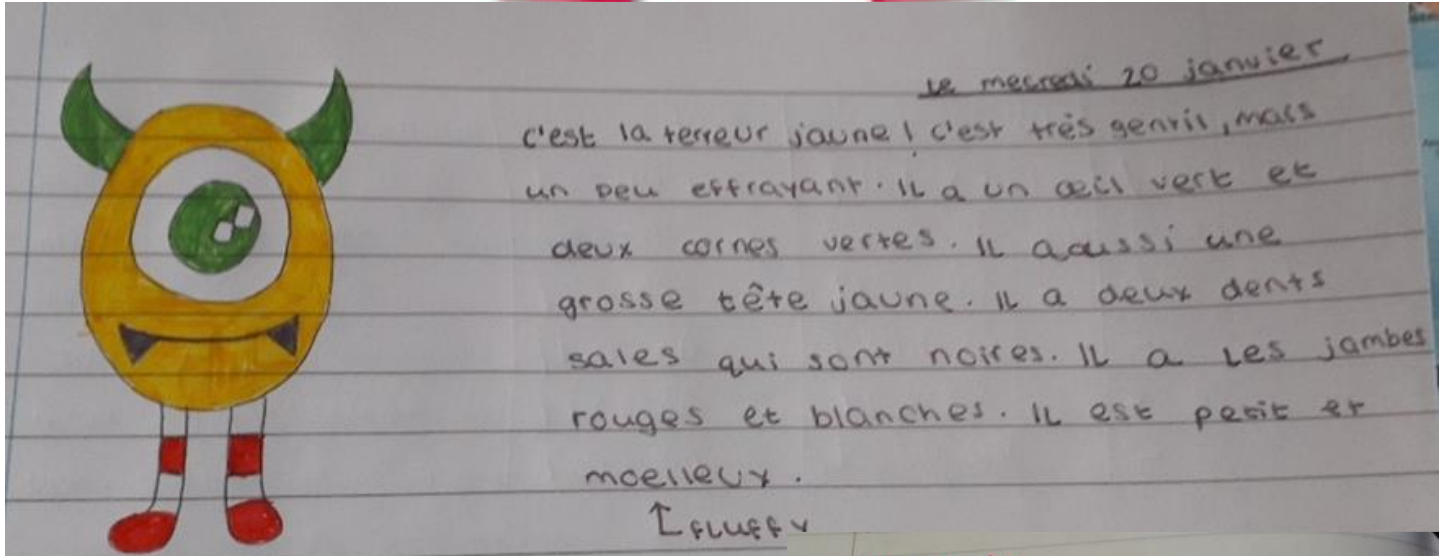 le mecredi 20 janvier
c'est la terreur jaune! c'est trés gentil, mais
un peu effrayant. Il a un œil vert et
deux cornes vertes. Il a aussi une
grosse tête jaune. Il a deux dents
sales qui sont noires. Il a les jambes
rouges et blanches. Il est petit et
moelleux.
↑ FLUFFY